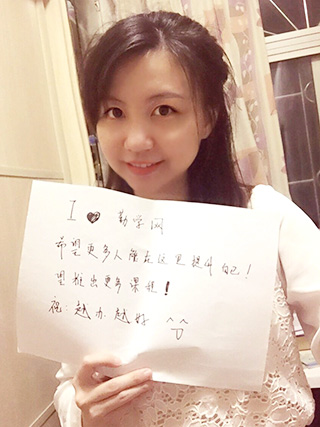 I ♥ 勤学网
希望更多人能在这里提升自己！
望推出更多课程！
祝：越办越好 ^_^